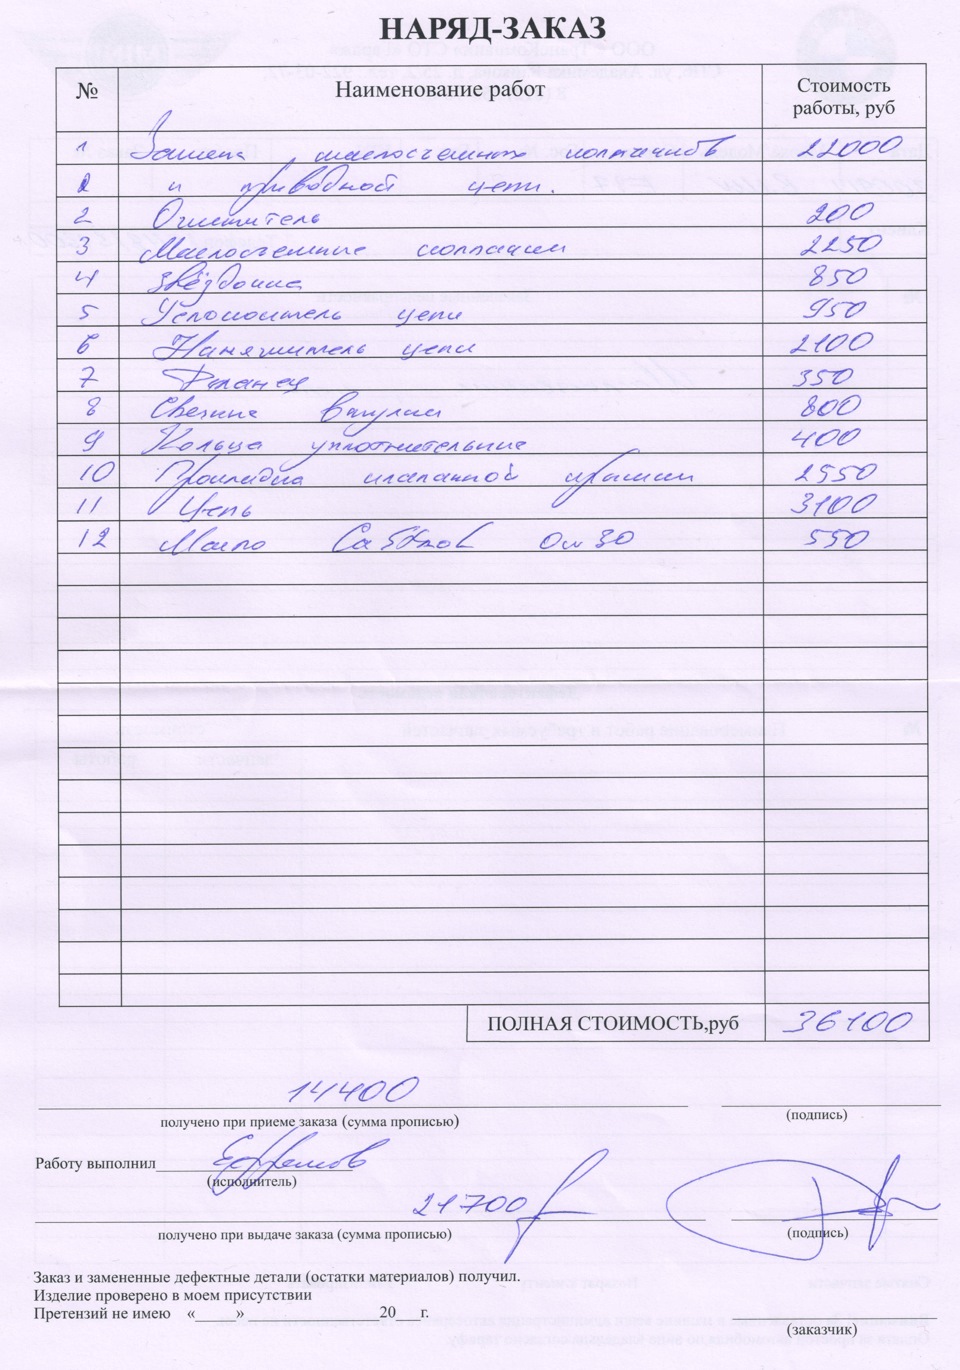 НАРЯД-ЗАКАЗ
№ Наименование работ Стоимость работы, руб
1 Замена маслосъемных колпачков 22000
2 и приводной цепи.
2 Очиститель 200
3 Маслосъемные колпачки 2250
4 Звёздочка 850
5 Успокоитель цепи 950
6 Натяжитель цепи 2100
7 Фланец 350
8 Свечные 800
9 Кольца уплотнительные 400
10 Прокладка клапанной крышки 2550
11 Цепь 3100
12 Масло Castrol 0w30 550
ПОЛНАЯ СТОИМОСТЬ,руб 36100
14400
получено при приеме заказа (сумма прописью) (подпись)
Работу выполнил Ефремов
(исполнитель)
21700
получено при выдаче заказа (сумма прописью) (подпись)
Заказ и замененные дефектные детали (остатки материалов) получил.
Изделие проверено в моем присутствии
Претензий не имею «_____» 20 г.
(заказчик)